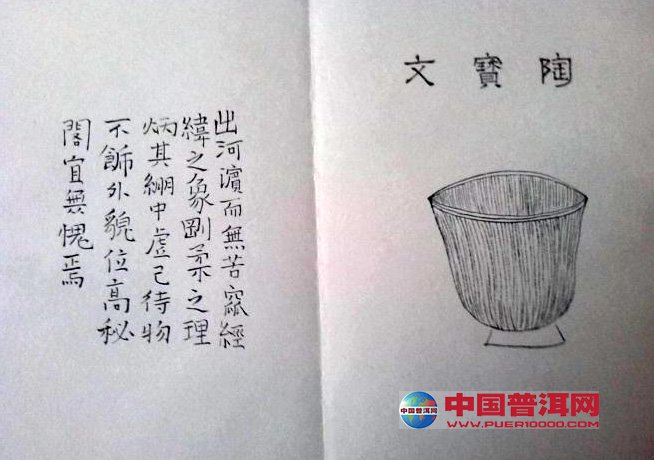 陶寶文
出河濱而無苦窳經
緯之象剛柔之理
炳其綳中虛己待物
不飾外貌位高秘
閣宜無愧焉
中国普洱网
中国普洱网
WWW.PUER10000.COM